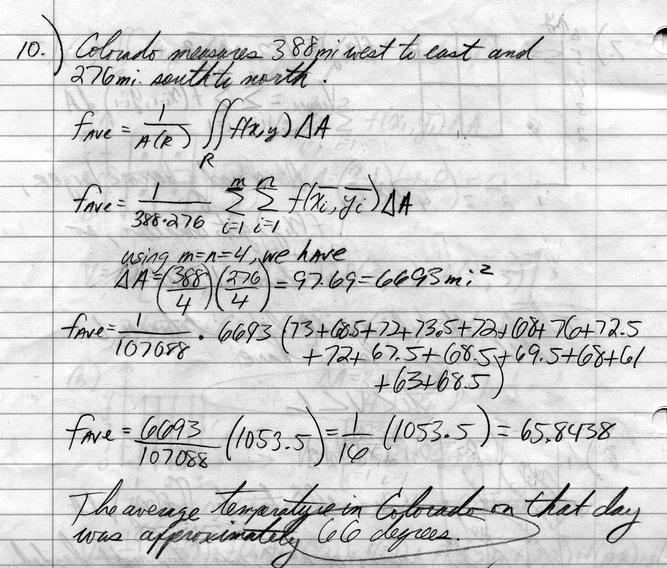 10.) Colorado measures 388 mi west to east and
276 mi. south to north.
fAve = 1/A(R) ∬R f(x,y) ΔA
fAve = 1/388·276 m∑i=1 n∑i=1 f(x̄i, ȳi) ΔA
using m=n=4, we have
ΔA = (388/4)(276/4) = 97·69 = 6693 mi²
fAve = 1/107088 · 6693 (73+68.5+72+73.5+72+68+76+72.5
+72+67.5+68.5+69.5+68+61
+63+68.5)
fAve = 6693/107088 (1053.5) = 1/16 (1053.5) = 65.8438
The average temperature in Colorado on that day
was approximately 66 degrees.